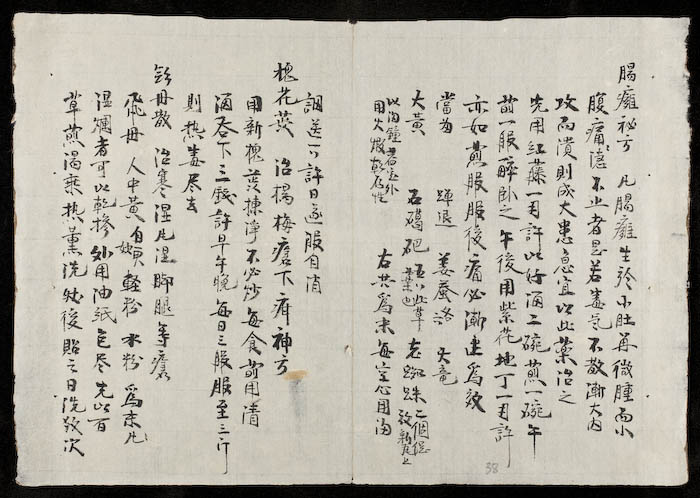 腸癰祕方 凡腸癰生於小肚角微腫而小
腹痛隱不止者是若毒氣不散漸大內
攻而潰則成大患急宜以此藥治之
先用紅藤一兩許以好酒二碗煎一碗午
前一服醉臥之午後用紫花地丁一兩許
亦如前煎服服後痛必漸止為效
當歸 蟬退 姜蚕 各 大黃
大黃 石 蛤 老蜘蛛二個
用火煅乾存性 右共為末每空心用酒
調送下許日逐服自消
槐花蕊 治楊梅瘡下疳神方
用新槐蕊揀淨不必炒每食前用清
酒吞下三錢許早午晚每日三服服至三斤
則熱毒盡去
治寒濕凡濕腳腿等瘡
飛丹 人中黃 輕粉 水粉 為末凡
濕爛者可以乾摻外用油紙包盡先以百
草煎湯乘熱薰洗然後貼之日洗數次
38